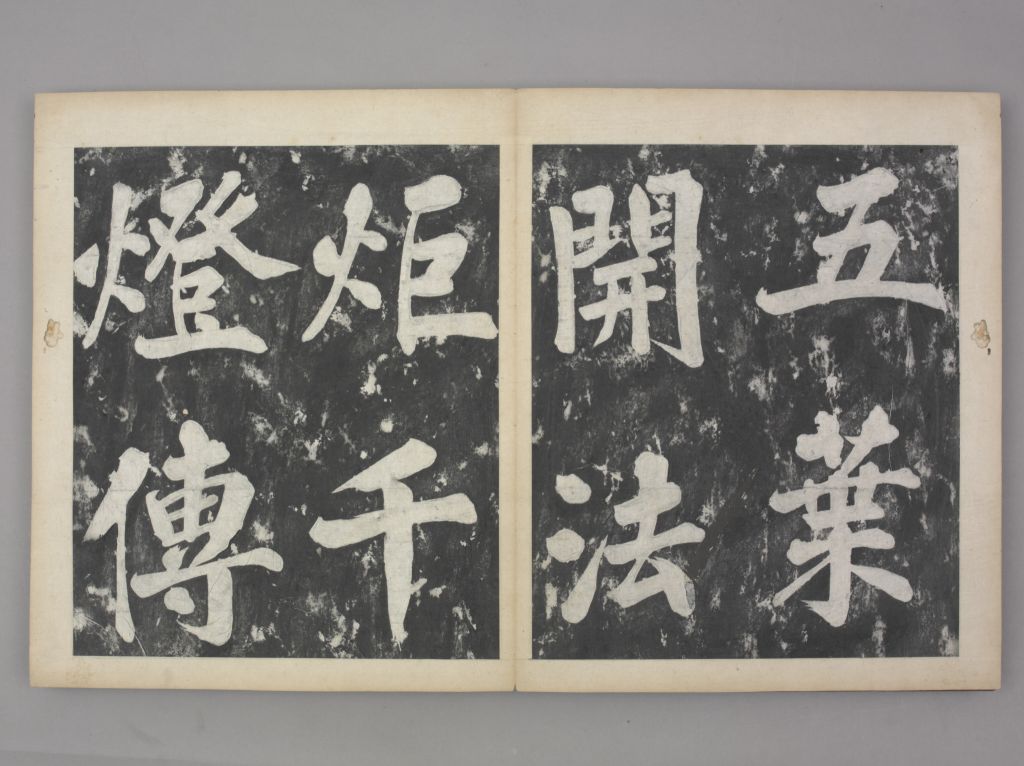 五葉
開法
炬千
燈傳